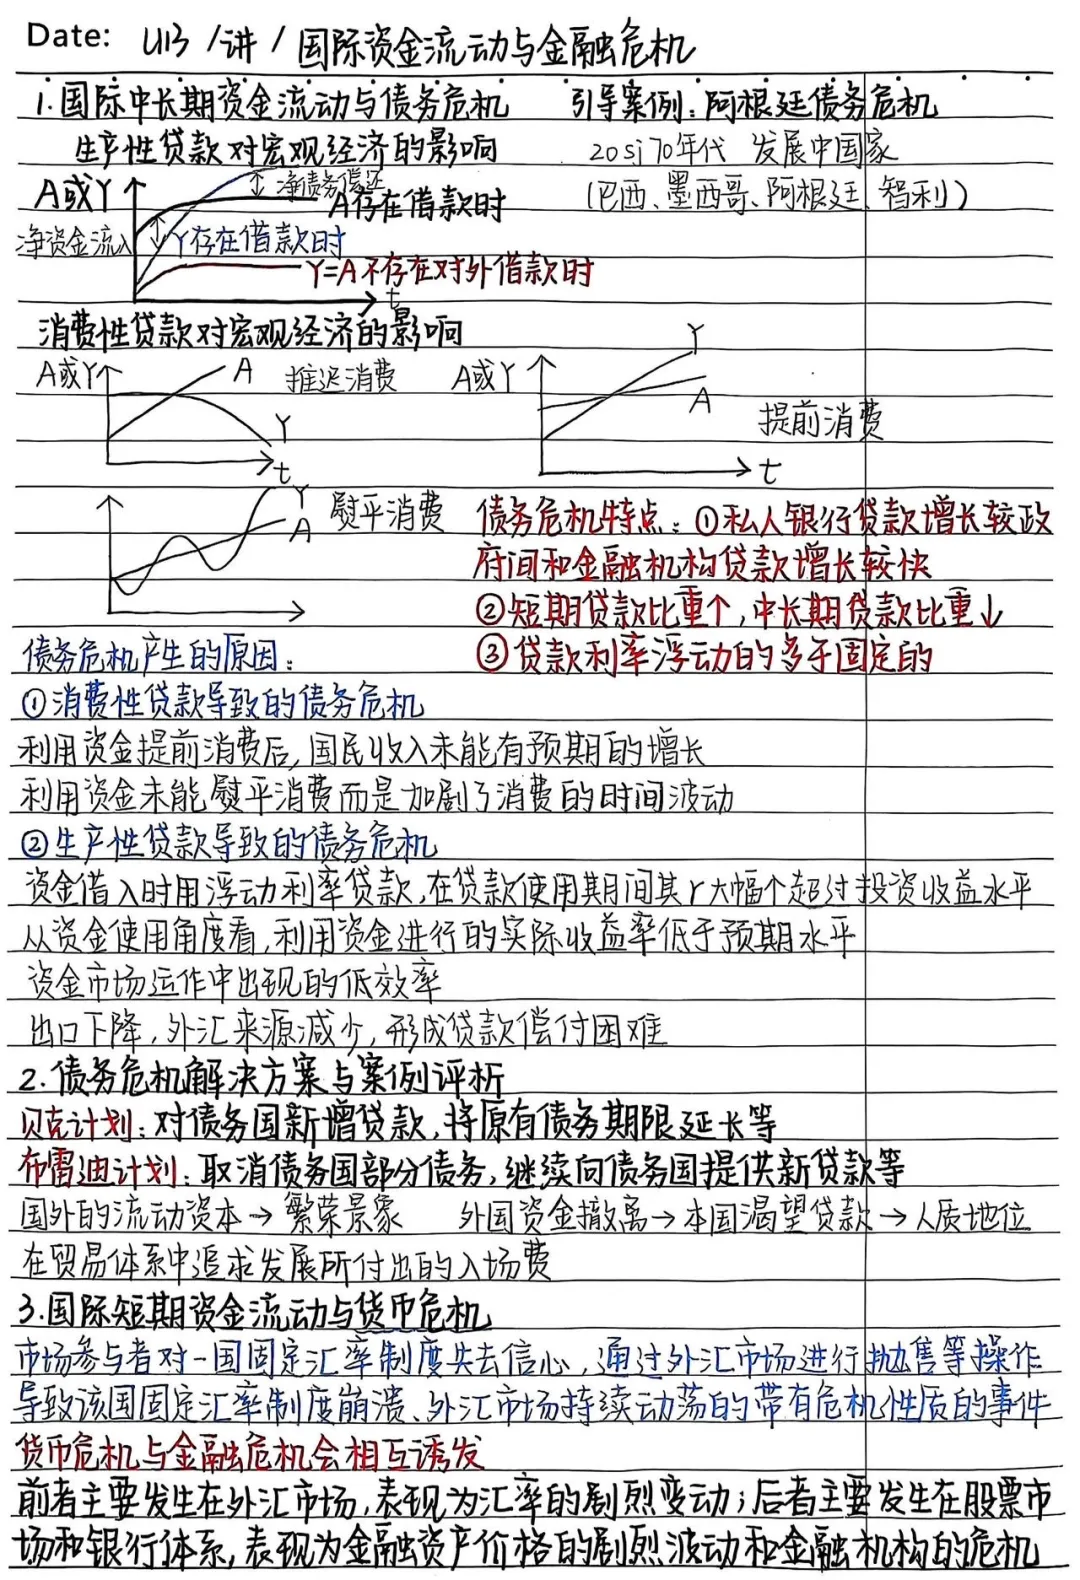 Date: U13 /讲 / 国际资金流动与金融危机
1.国际中长期资金流动与债务危机 引导案例:阿根廷债务危机
生产性贷款对宏观经济的影响 20sj70年代 发展中国家
(巴西、墨西哥、阿根廷、智利)
A或Y 净债务偿还
A存在借款时
净资金流入 Y存在借款时
Y=A不存在对外借款时
t
消费性贷款对宏观经济的影响
A或Y A 推迟消费 Y t
A或Y Y A 提前消费 t
Y A 熨平消费
债务危机特点:①私人银行贷款增长较政
府间和金融机构贷款增长较快
②短期贷款比重个,中长期贷款比重↓
③贷款利率浮动的多于固定的
债务危机产生的原因:
①消费性贷款导致的债务危机
利用资金提前消费后,国民收入未能有预期的增长
利用资金未能熨平消费而是加剧了消费的时间波动
②生产性贷款导致的债务危机
资金借入时用浮动利率贷款,在贷款使用期间其r大幅个超过投资收益水平
从资金使用角度看,利用资金进行的实际收益率低于预期水平
资金市场运作中出现的低效率
出口下降,外汇来源减少,形成贷款偿付困难
2.债务危机解决方案与案例评析
贝克计划:对债务国新增贷款,将原有债务期限延长等
布雷迪计划:取消债务国部分债务,继续向债务国提供新贷款等
国外的流动资本→繁荣景象 外国资金撤离→本国渴望贷款→人质地位
在贸易体系中追求发展所付出的入场费
3.国际短期资金流动与货币危机
市场参与者对一国固定汇率制度失去信心,通过外汇市场进行抛售等操作
导致该国固定汇率制度崩溃、外汇市场持续动荡的带有危机性质的事件
货币危机与金融危机会相互诱发
前者主要发生在外汇市场,表现为汇率的剧烈变动;后者主要发生在股票市
场和银行体系,表现为金融资产价格的剧烈波动和金融机构的危机